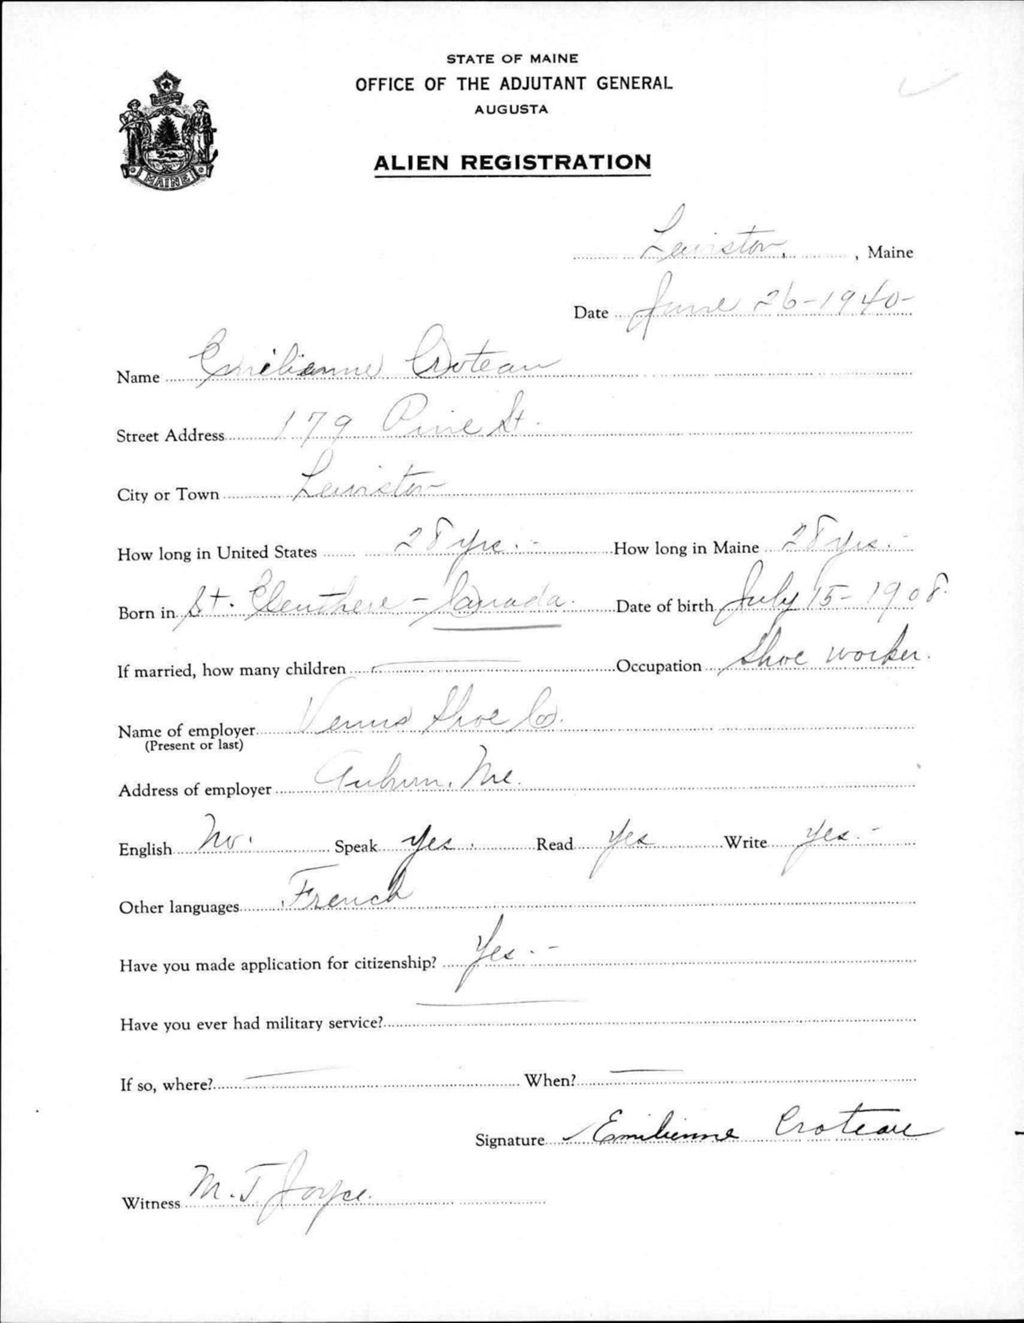 STATE OF MAINE
OFFICE OF THE ADJUTANT GENERAL
AUGUSTA
ALIEN REGISTRATION
MAINE
Lewiston, , Maine
Date June 26-1940-
Name Emilienne Croteau
Street Address 179 Pine St.
City or Town Lewiston
How long in United States 28 yrs. - How long in Maine 28 yrs. -
Born in St. Eleuthere - Canada. Date of birth July 15-1908.
If married, how many children Occupation Shoe worker.
Name of employer Venus Shoe Co.
(Present or last)
Address of employer Auburn, Me.
English No. Speak Yes. Read Yes Write Yes. -
Other languages French
Have you made application for citizenship? Yes. -
Have you ever had military service?
If so, where? When?
Signature Emilienne Croteau
Witness M. T. Joyce.